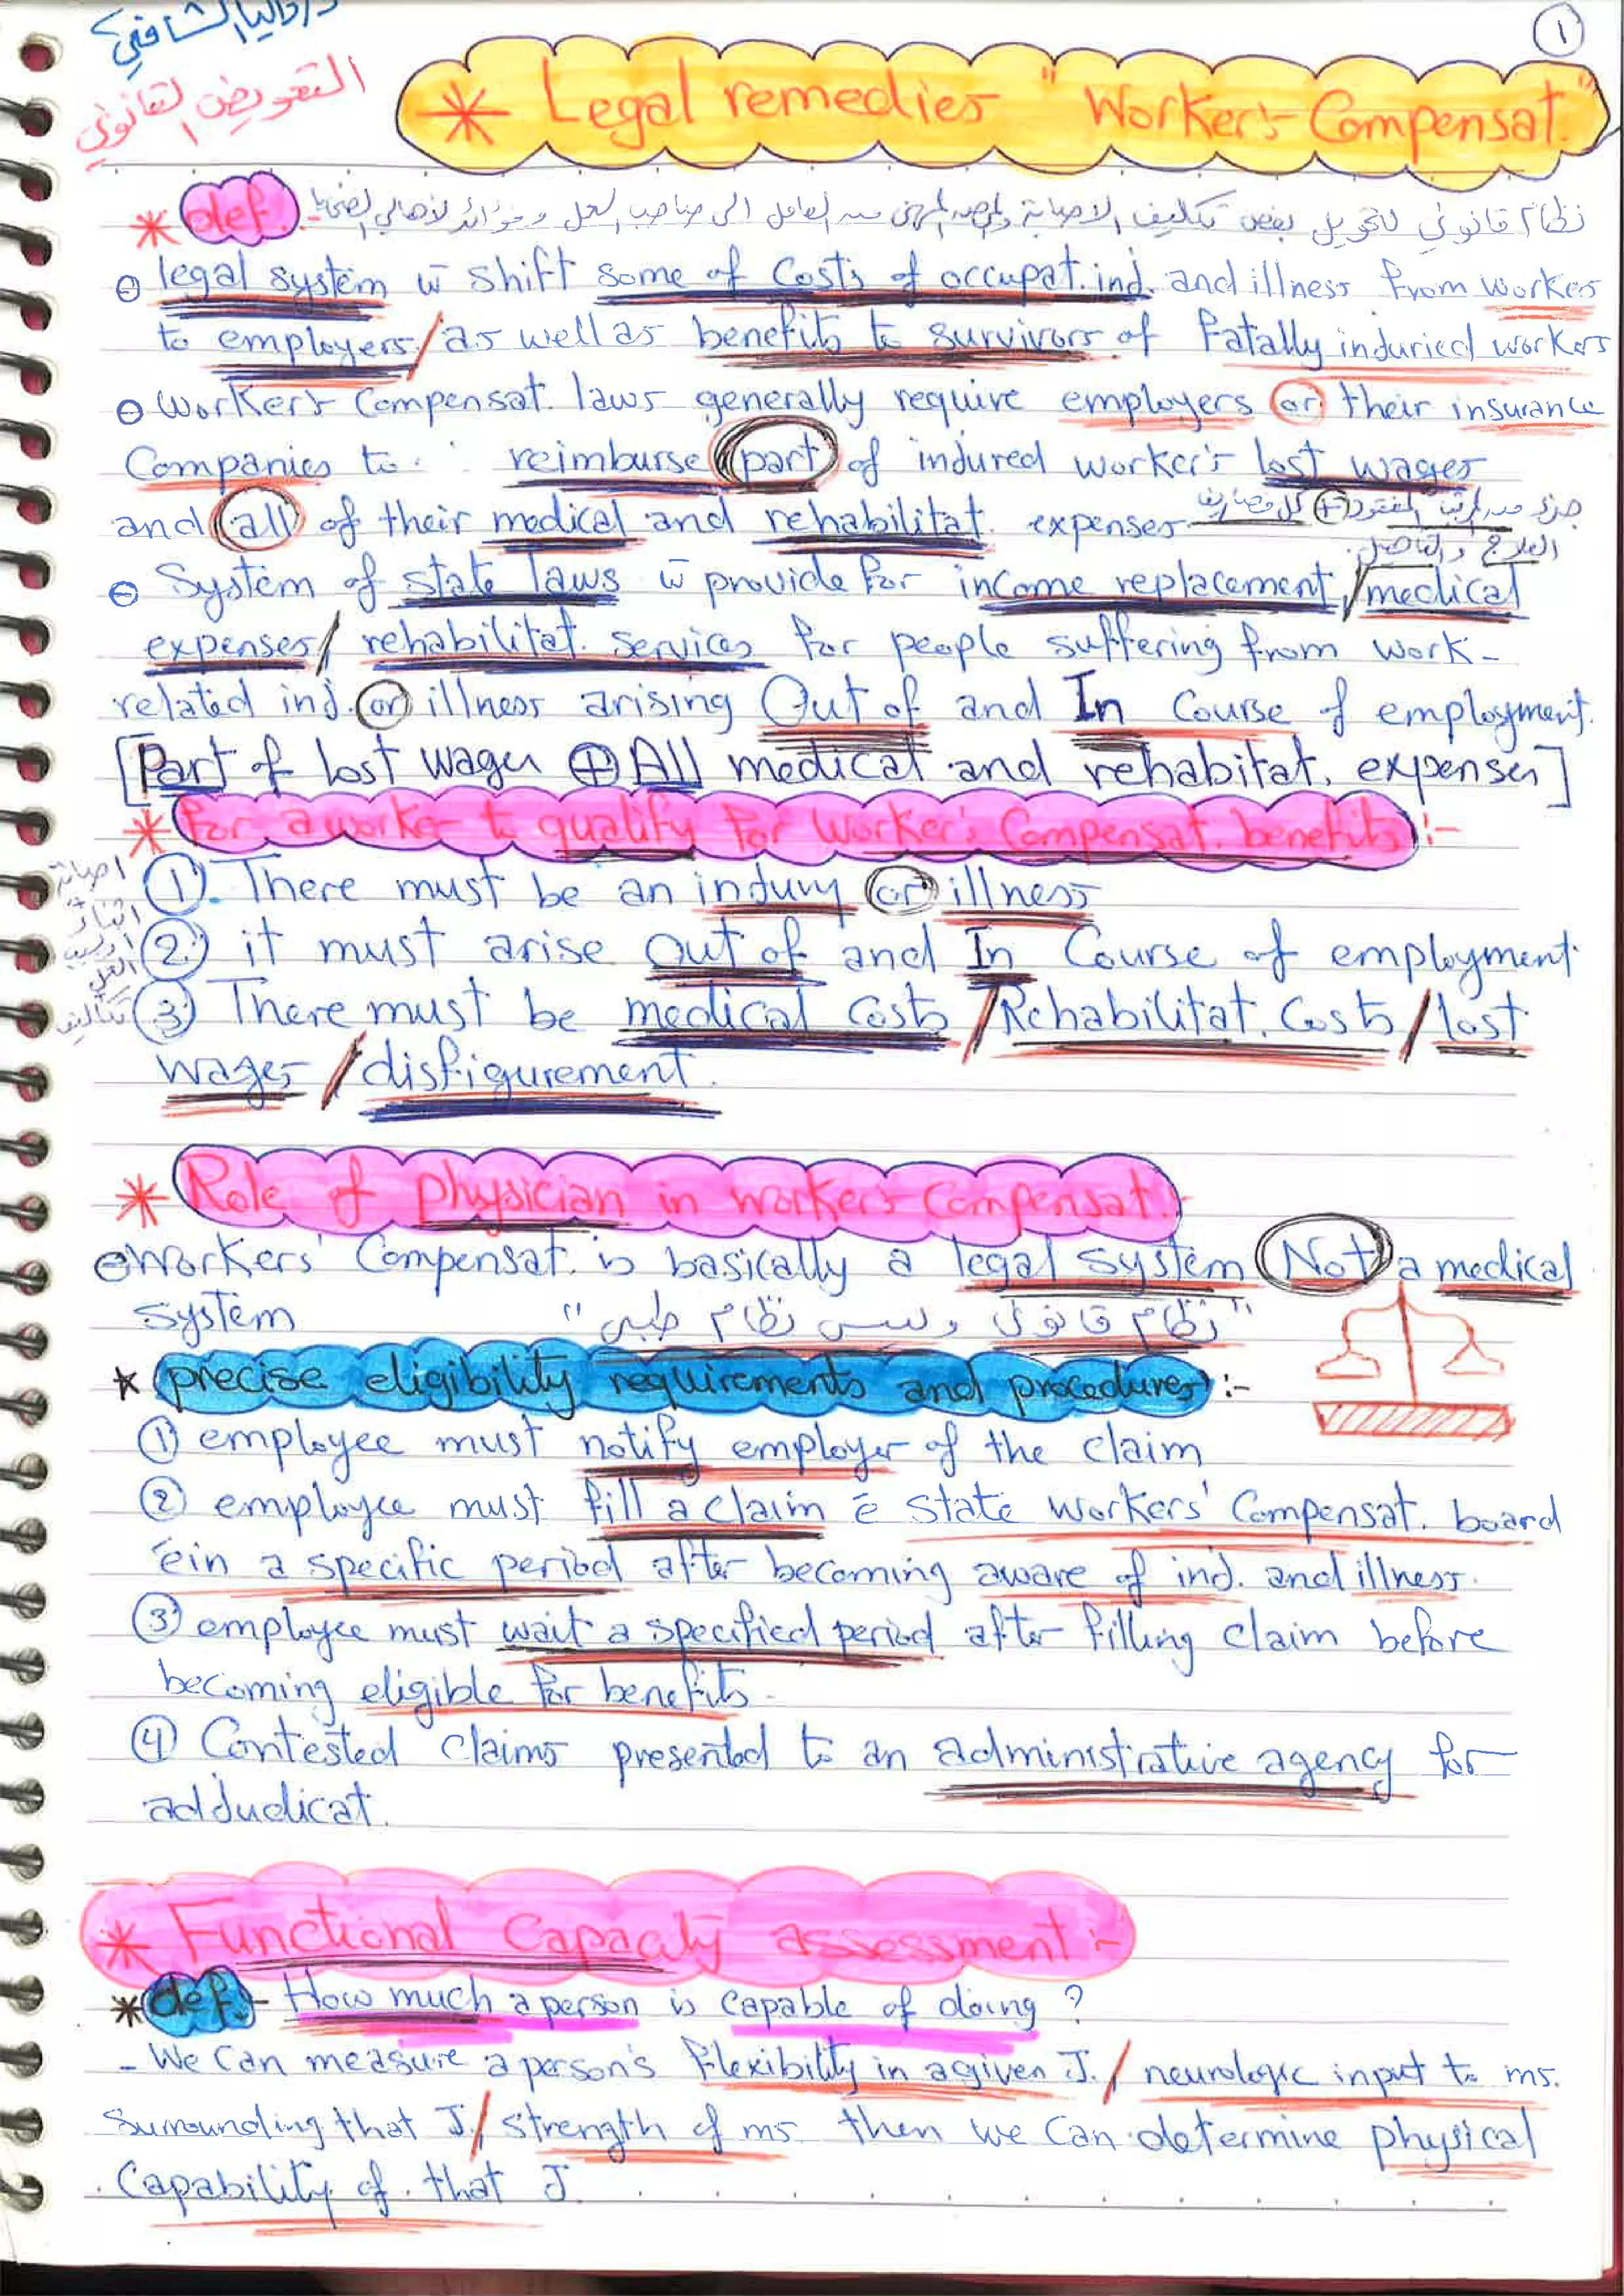 د/داليا الشافعي
1
التعويض القانوني
* Legal remedies "Worker's Compensat."
* def. :- نظام قانوني لتحويل بعض تكاليف الاصابة والمرض المهني من العامل الى صاحب العمل وفوائد لأهالي الضحايا
⊖ legal system w̄ shift some of Costs of occupat. inj. and illness from worker
to employers / as well as benefits to survivors of fatally injuried workers
⊖ Worker's Compensat. laws generally require employers or their insurance
Companies to reimburse part of injured worker's lost wages
and all of their medical and rehabilitat. expenses جزء من المرتب المفقود + كل مصاريف
العلاج والتأهيل.
⊖ System of state laws w̄ provide for income replacement / medical
expenses / rehabilitat. services for people suffering from work-
related inj. or illness arising Out of and In Course of employment.
[Part of lost wages ⊕ All medical and rehabitat. expenses]
* For a worker to qualify for Worker's Compensat. benefits :-
اصابة
اثناء
العمل
تكاليف
① There must be an injury or illness
② it must arise out of and In Course of employment
③ There must be medical Costs / Rehabilitat. Costs / lost
wages / disfigurement.
* Role of physician in worker's Compensat. :-
⊖ Workers' Compensat. is basically a legal system Not a medical
system "نظام قانوني وليس نظام طبي"
* precise eligibility requirements and procedures :-
① employee must notify employer of the claim
② employee must fill a claim ē state workers' Compensat. board
ēin a specific period after becoming aware of inj. and illness.
③ employee must wait a specified period after filling claim before
becoming eligible for benefits.
④ Contested claims presented to an administrative agency for
adjudicat.
* Functional Capacity assessment :-
* def. - How much a person is capable of doing ?
- We Can measure a person's flexibility in a given J. / neurologic input to ms.
surrounding that J. / strength of ms. then we Can determine physical
Capability of that J.